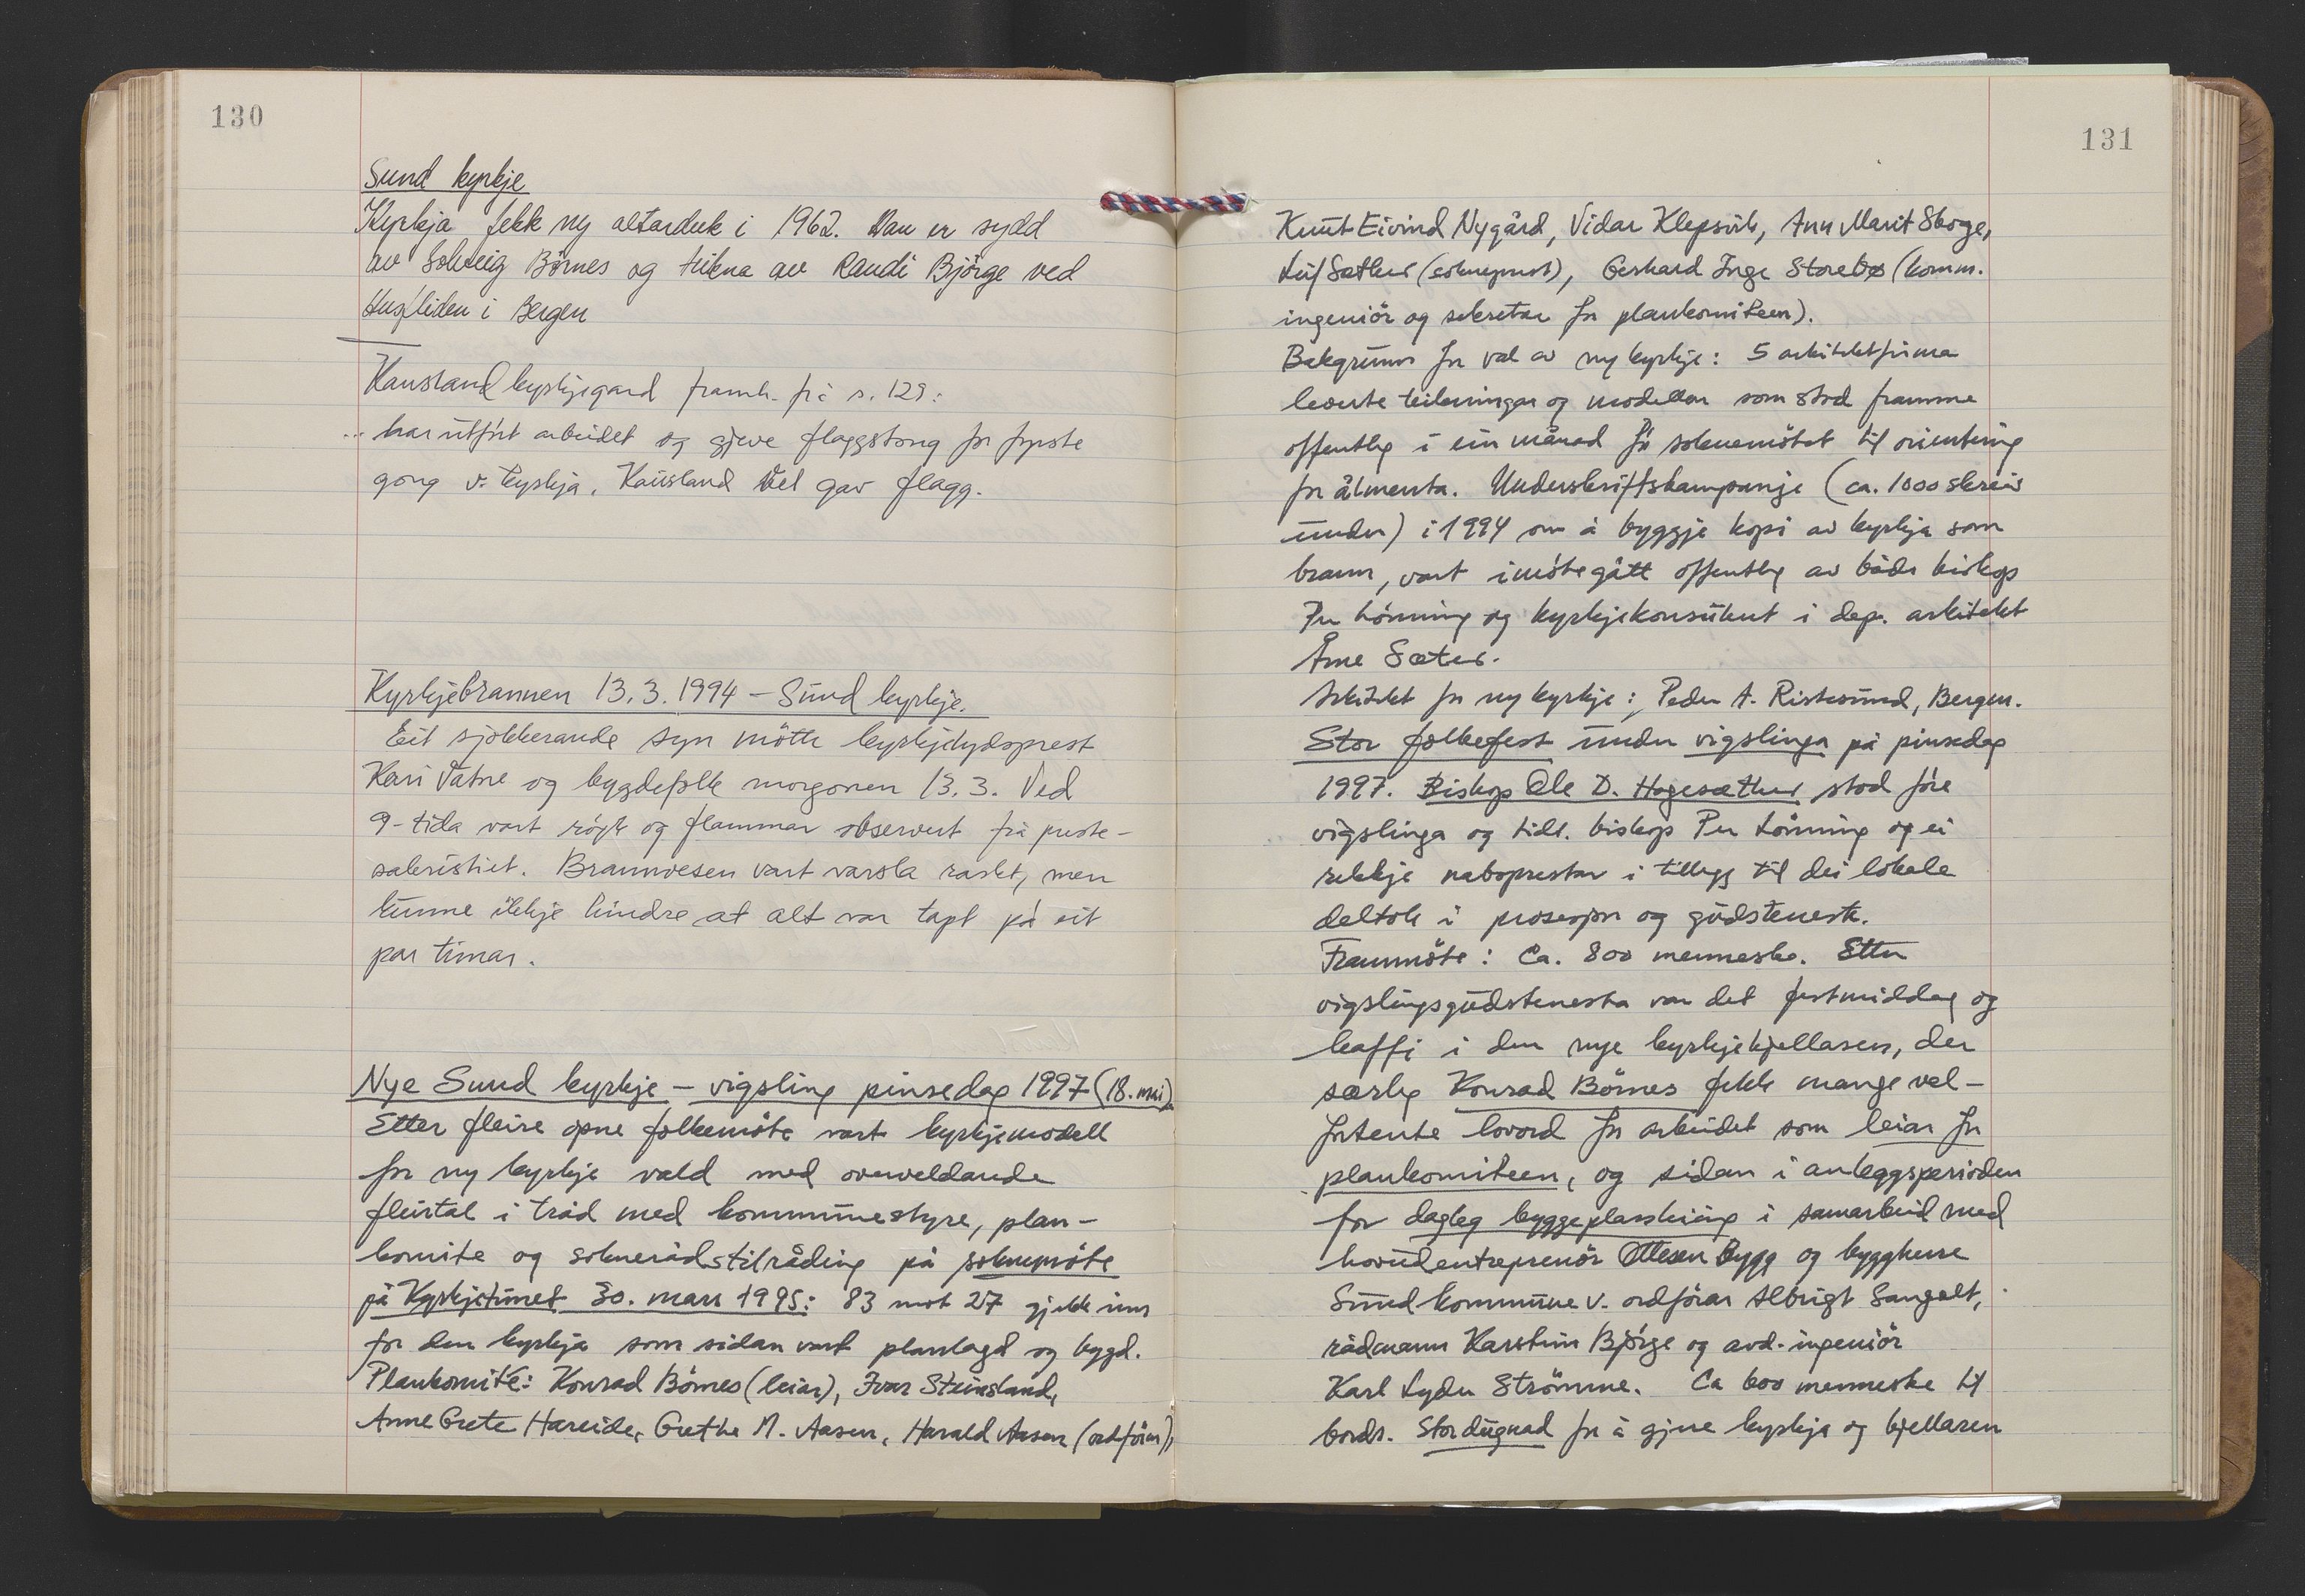 130
Sund kyrkje
Kyrkja fekk ny altarduk i 1962. Han er sydd
av Solveig Börnes og teikna av Randi Björge ved
Husfliden i Bergen
Kausland kyrkjegard framh. frå s. 129:
... har utfört arbeidet og gjeve flaggstong for fyrste
gong v. kyrkja. Kausland Vel gav flagg.
Kyrkjebrannen 13.3.1994 – Sund kyrkje.
Eit sjokkerande syn mötte kyrkjelydsprest
Kari Vatne og bygdefolk morgonen 13.3. Ved
9-tida vart röyk og flammar observert frå preste-
sakristiet. Brannvesen vart varsla raskt, men
kunne ikkje hindre at alt var tapt på eit
par timar.
Nye Sund kyrkje – vigsling pinsedag 1997 (18. mai).
Etter fleire opne folkemöte vart kyrkjemodell
for ny kyrkje vald med overveldande
fleirtal i tråd med kommunestyre, plan-
komite og sokneråds tilråding på soknemöte
på Kyrkjetunet 30. mars 1995: 83 mot 27 gjekk inn
for den kyrkja som sidan vart planlagd og bygd.
Plankomité: Konrad Börnes (leiar), Ivar Steinsland,
Anne Grete Hareide, Grethe M. Aasen, Harald Aasen (ordförar),
131
Knut Eivind Nygård, Vidar Klepsvik, Ann Marit Skoge,
Leif Sæther (sokneprest), Gerhard Inge Storebø (komm.
ingeniör og sekretær for plankomiteen).
Bakgrunn for val av ny kyrkje: 5 arkitektfirma
leverte teikningar og modellar som stod framme
offentleg i ein månad för soknemötet til orientering
for ålmenta. Underskriftskampanje (ca. 1000 skreiv
under) i 1994 om å byggje kopi av kyrkja som
brann, vart imötegått offentleg av både biskop
Per Lönning og kyrkjekonsulent i dep. arkitekt
Arne Sæter.
Arkitekt for ny kyrkje: Peder A. Ristesund, Bergen.
Stor folkefest under vigslinga på pinsedag
1997. Biskop Ole D. Hagesæther stod före
vigslinga og tidl. biskop Per Lönning og ei
rekkje naboprestar i tillegg til dei lokale
deltok i prosesjon og gudsteneste.
Frammöte: Ca. 800 menneske. Etter
vigslingsgudstenesta var det festmiddag og
kaffi i den nye kyrkjekjellaren, der
særleg Konrad Börnes fekk mange vel-
fortente lovord for arbeidet som leiar for
plankomiteen, og sidan i anleggsperioden
for dagleg byggeplassleiing i samarbeid med
hovudentreprenör Ottesen Bygg og byggherre
Sund kommune v. ordförar Albrigt Sangolt,
rådmann Karstein Björge og avd. ingeniör
Karl Lyder Strömme. Ca 600 menneske til
bords. Stor dugnad for å gjere kyrkja og kjellaren